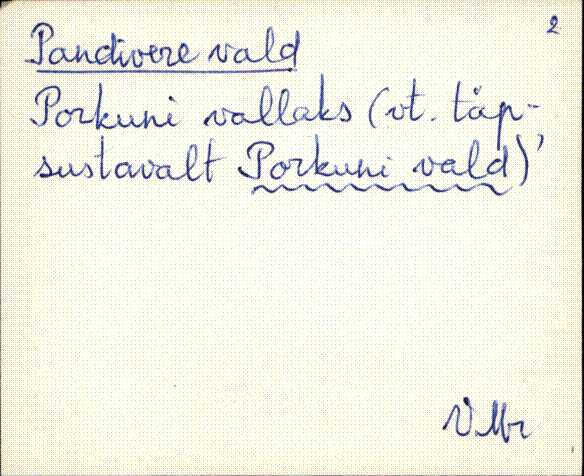 2
Pandivere vald
Porkuni vallaks (vt. täp-
sustavalt Porkuni vald)'
VMr